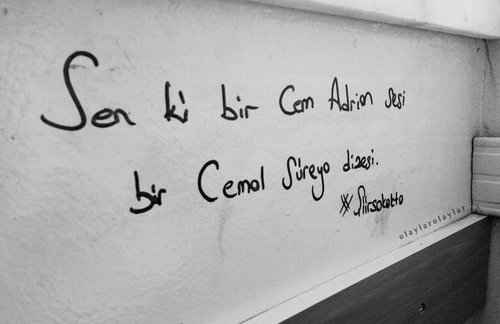 Sen ki bir Cem Adrian sesi
bir Cemal Süreya dizesi.
#Şiirsokakta
olaylarolaylar